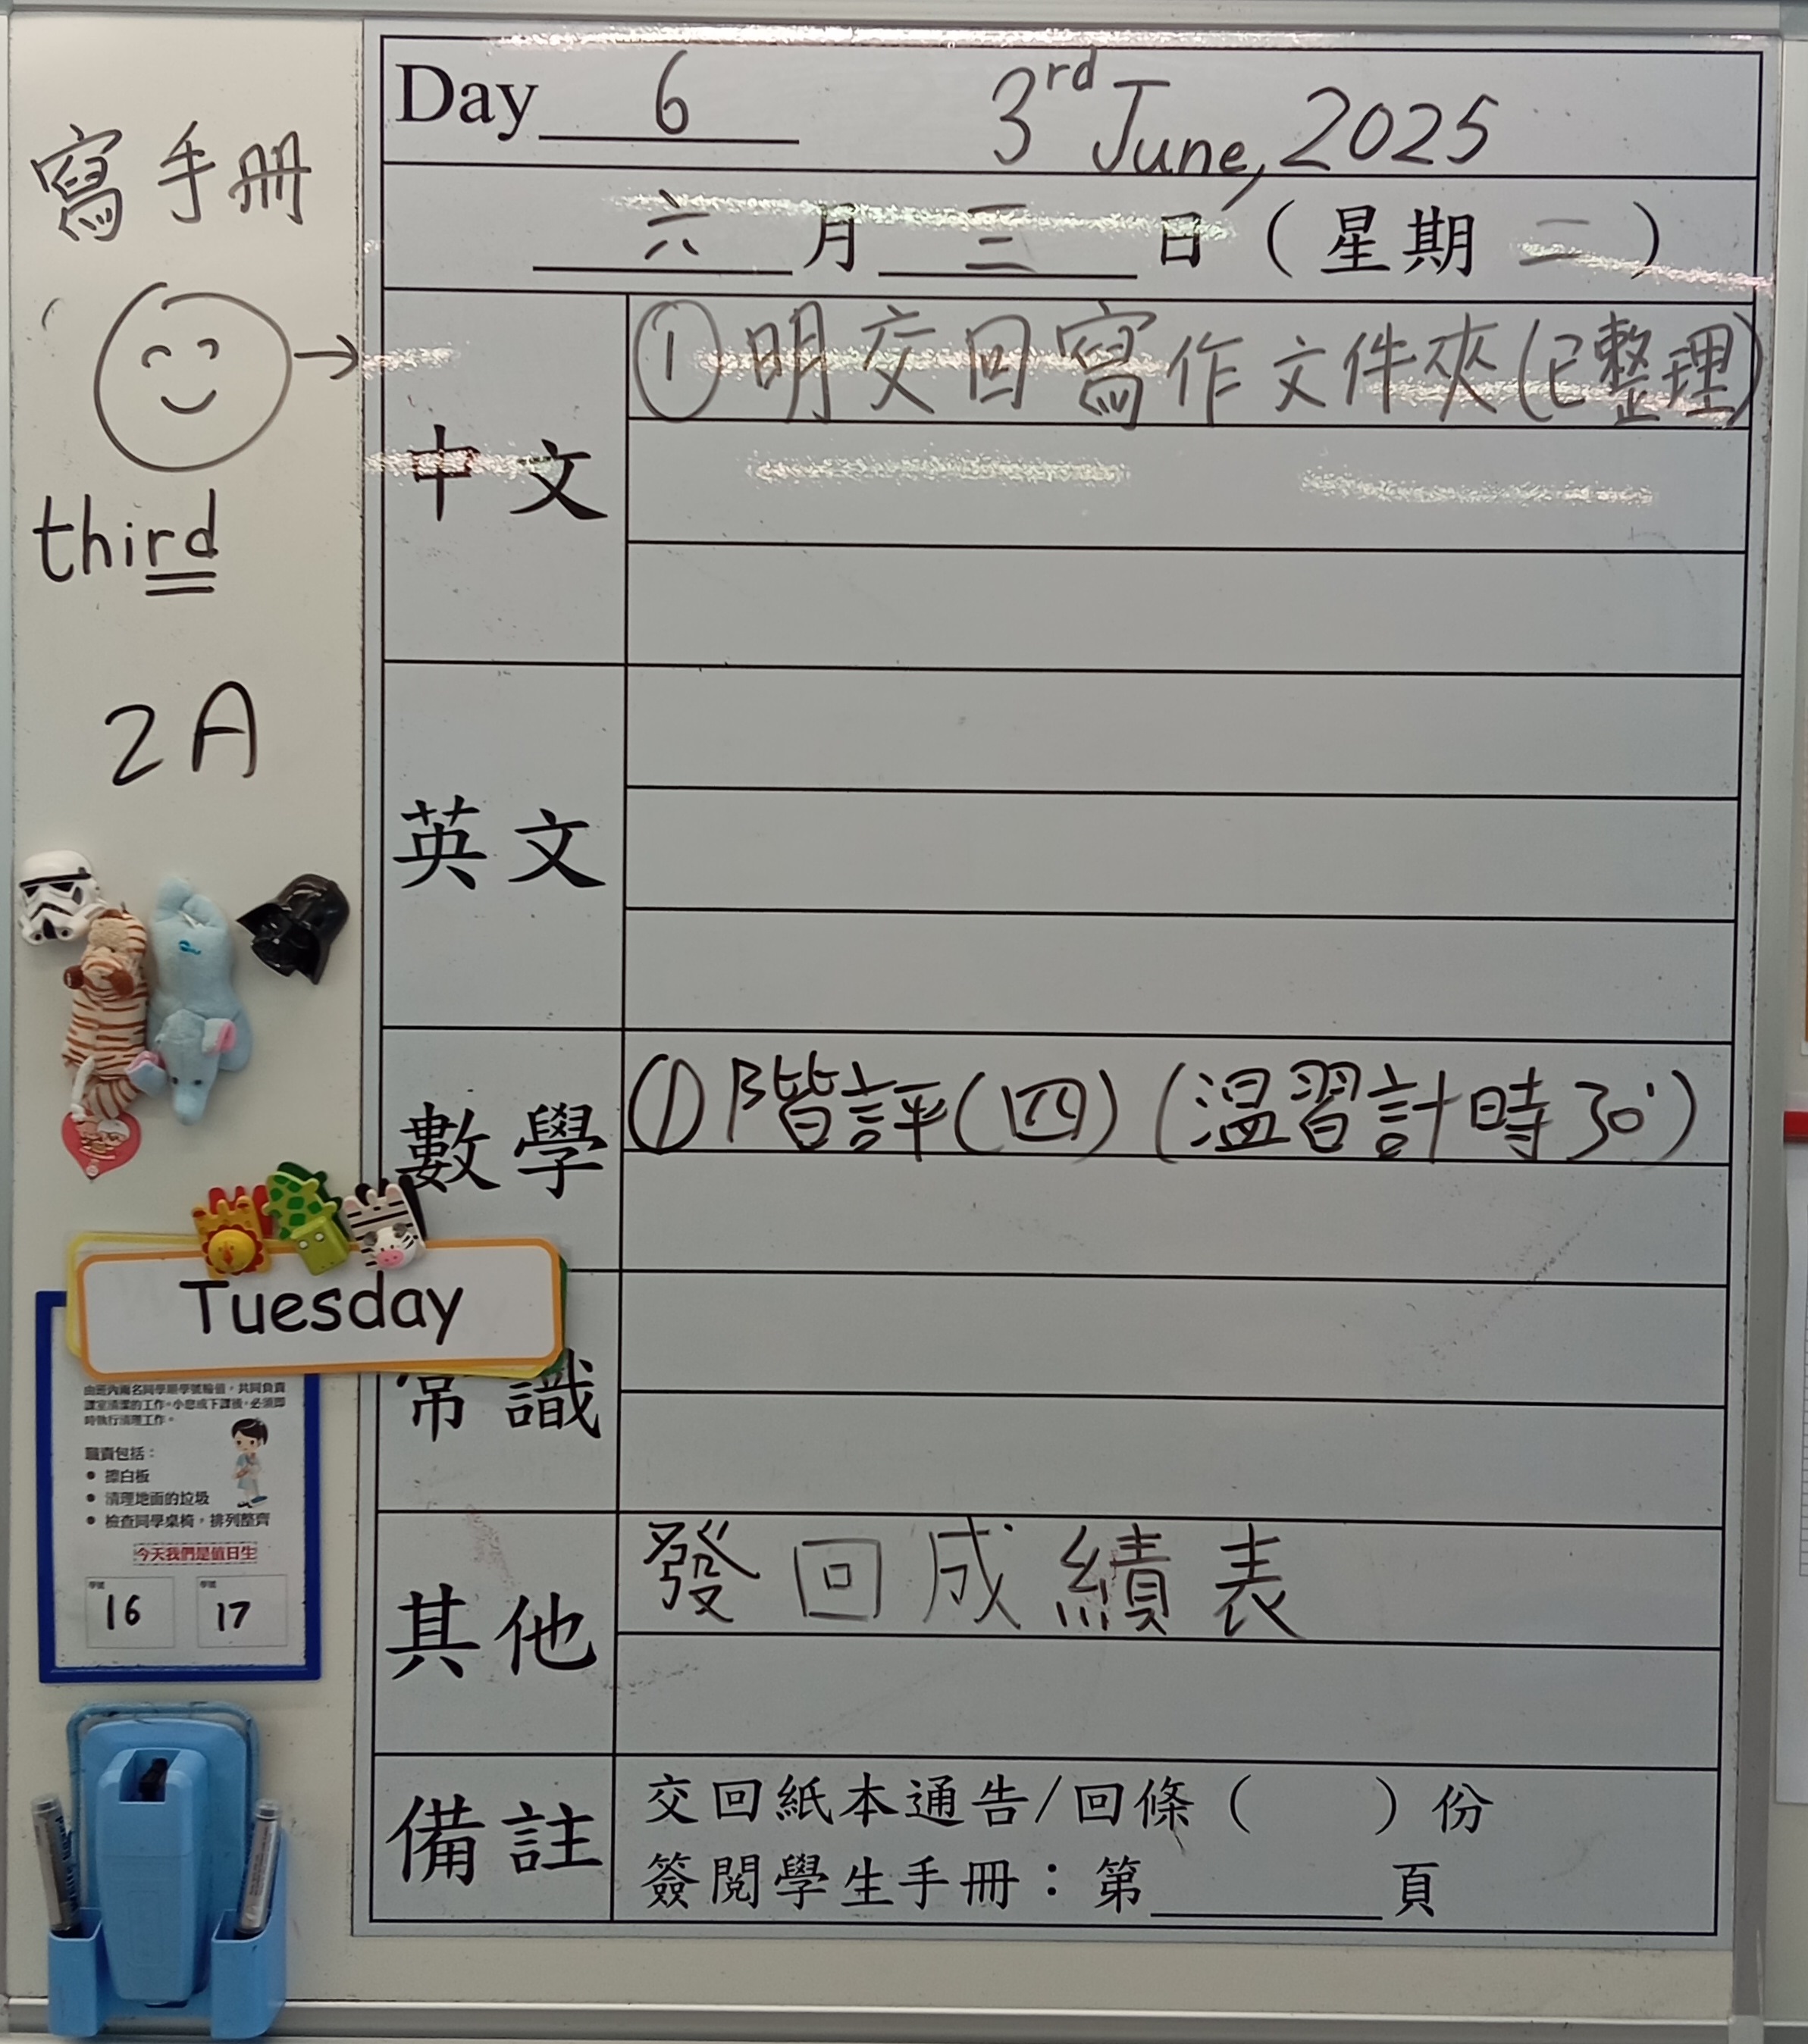 寫手冊
third
2A
Day 6 3rd June, 2025
六月三日(星期二)
中文
①明交回寫作文件夾(已整理)
英文
數學
①階評(四)(溫習計時30')
Tuesday
常識
其他
發回成績表
備註
交回紙本通告/回條( )份
簽閱學生手冊：第 頁
由班內兩名同學順學號輪值，共同負責
課室清潔的工作。小息或下課後，必須即
時執行清理工作。
職責包括：
• 擦白板
• 清理地面的垃圾
• 檢查同學桌椅，排列整齊
今天我們是值日生
學號 學號
16 17